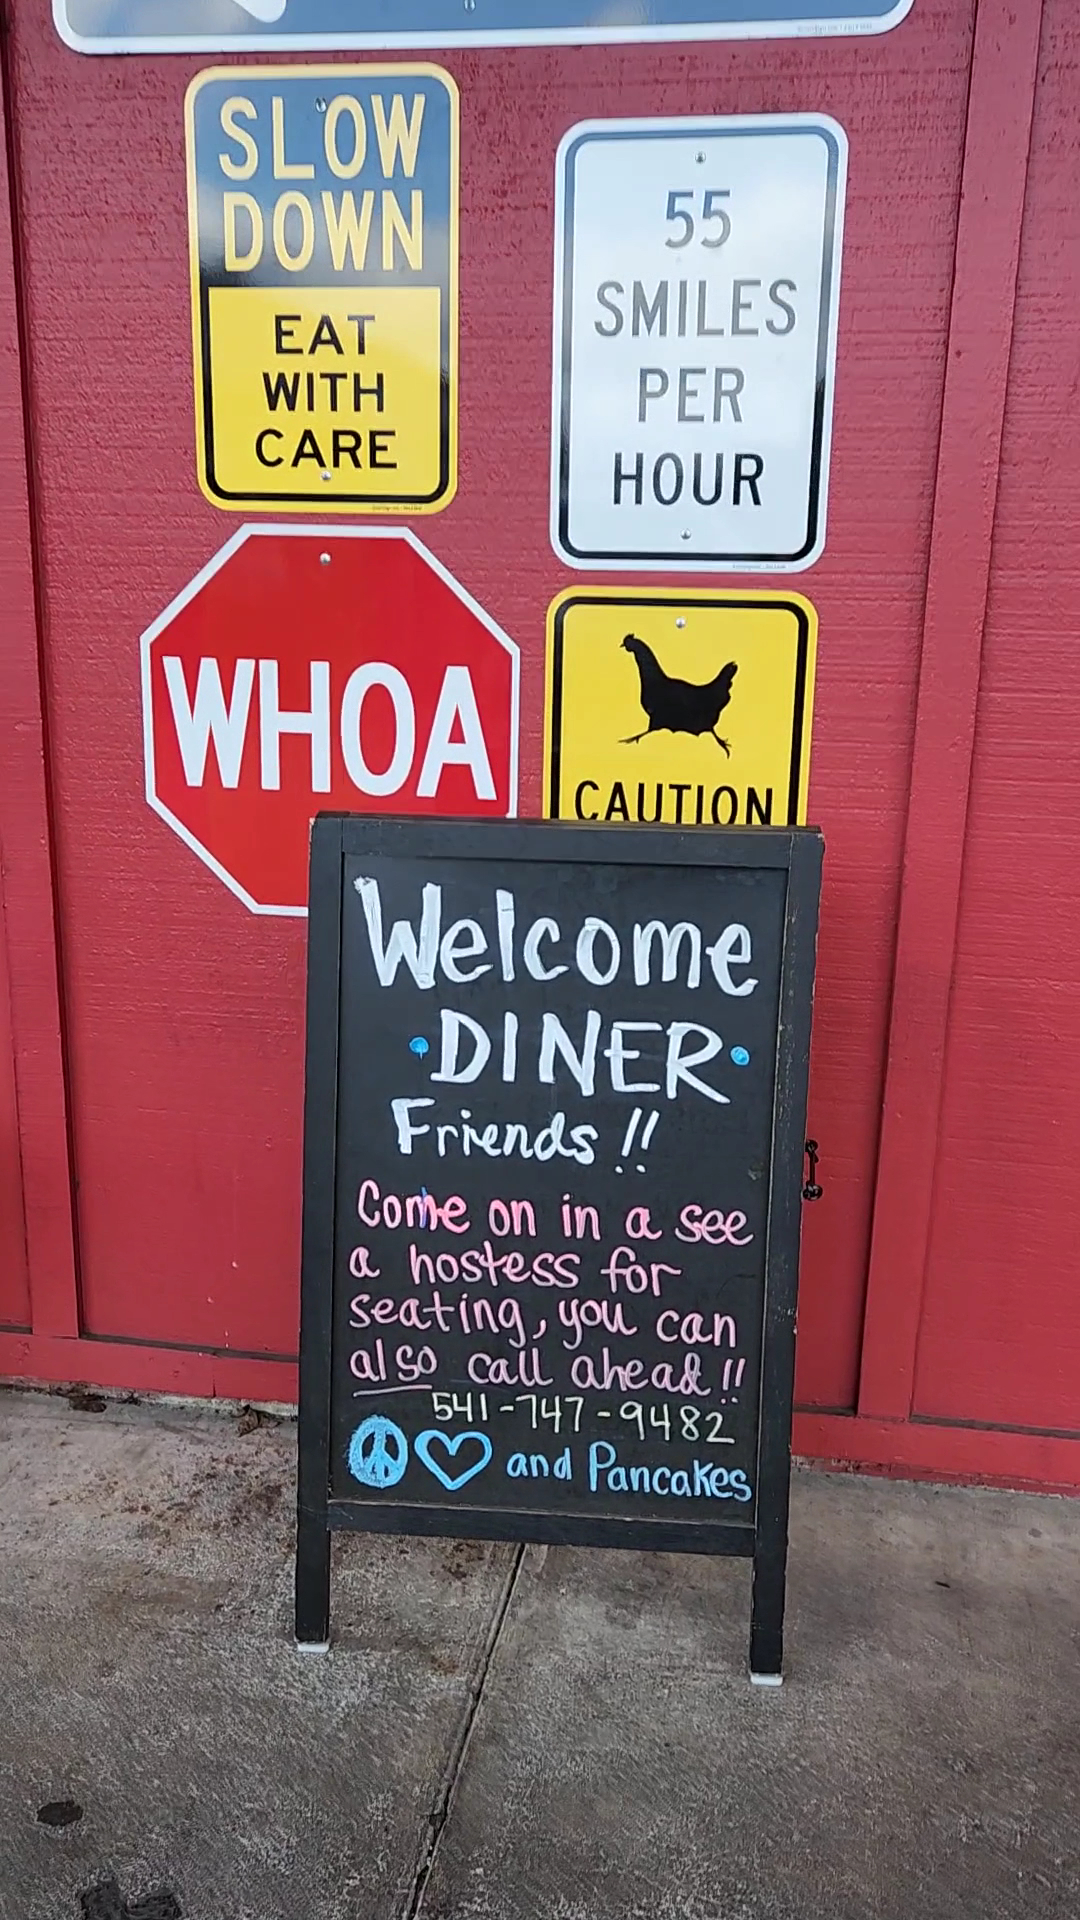 SLOW
DOWN
EAT
WITH
CARE
55
SMILES
PER
HOUR
WHOA
CAUTION
Welcome
•DINER•
Friends!!
Come on in a see
a hostess for
seating, you can
also call ahead!!
541-747-9482
and Pancakes